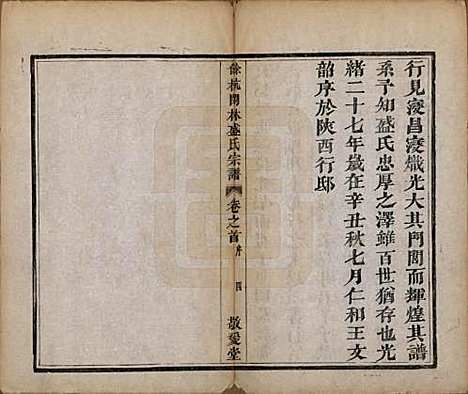 行見寖昌寖熾光大其門閭而輝煌其譜
系予知盛氏忠厚之澤雖百世猶存也光
緒二十七年歲在辛丑秋七月仁和王文
韶序於陝西行邸
餘杭閑林盛氏宗譜 卷之首 序 四 敬愛堂